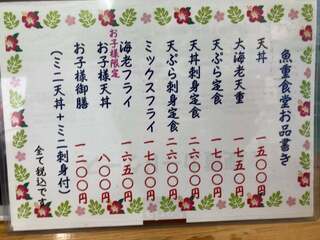 魚重食堂お品書き
天丼 一五〇〇円
大海老天重 一七〇〇円
天ぷら定食 一七五〇円
天丼刺身定食 二六〇〇円
天ぷら刺身定食 二六〇〇円
ミックスフライ 一七〇〇円
海老フライ 一六五〇円
お子様限定
お子様天丼 八〇〇円
お子様御膳 一二〇〇円
（ミニ天丼＋ミニ刺身付）
全て税込です